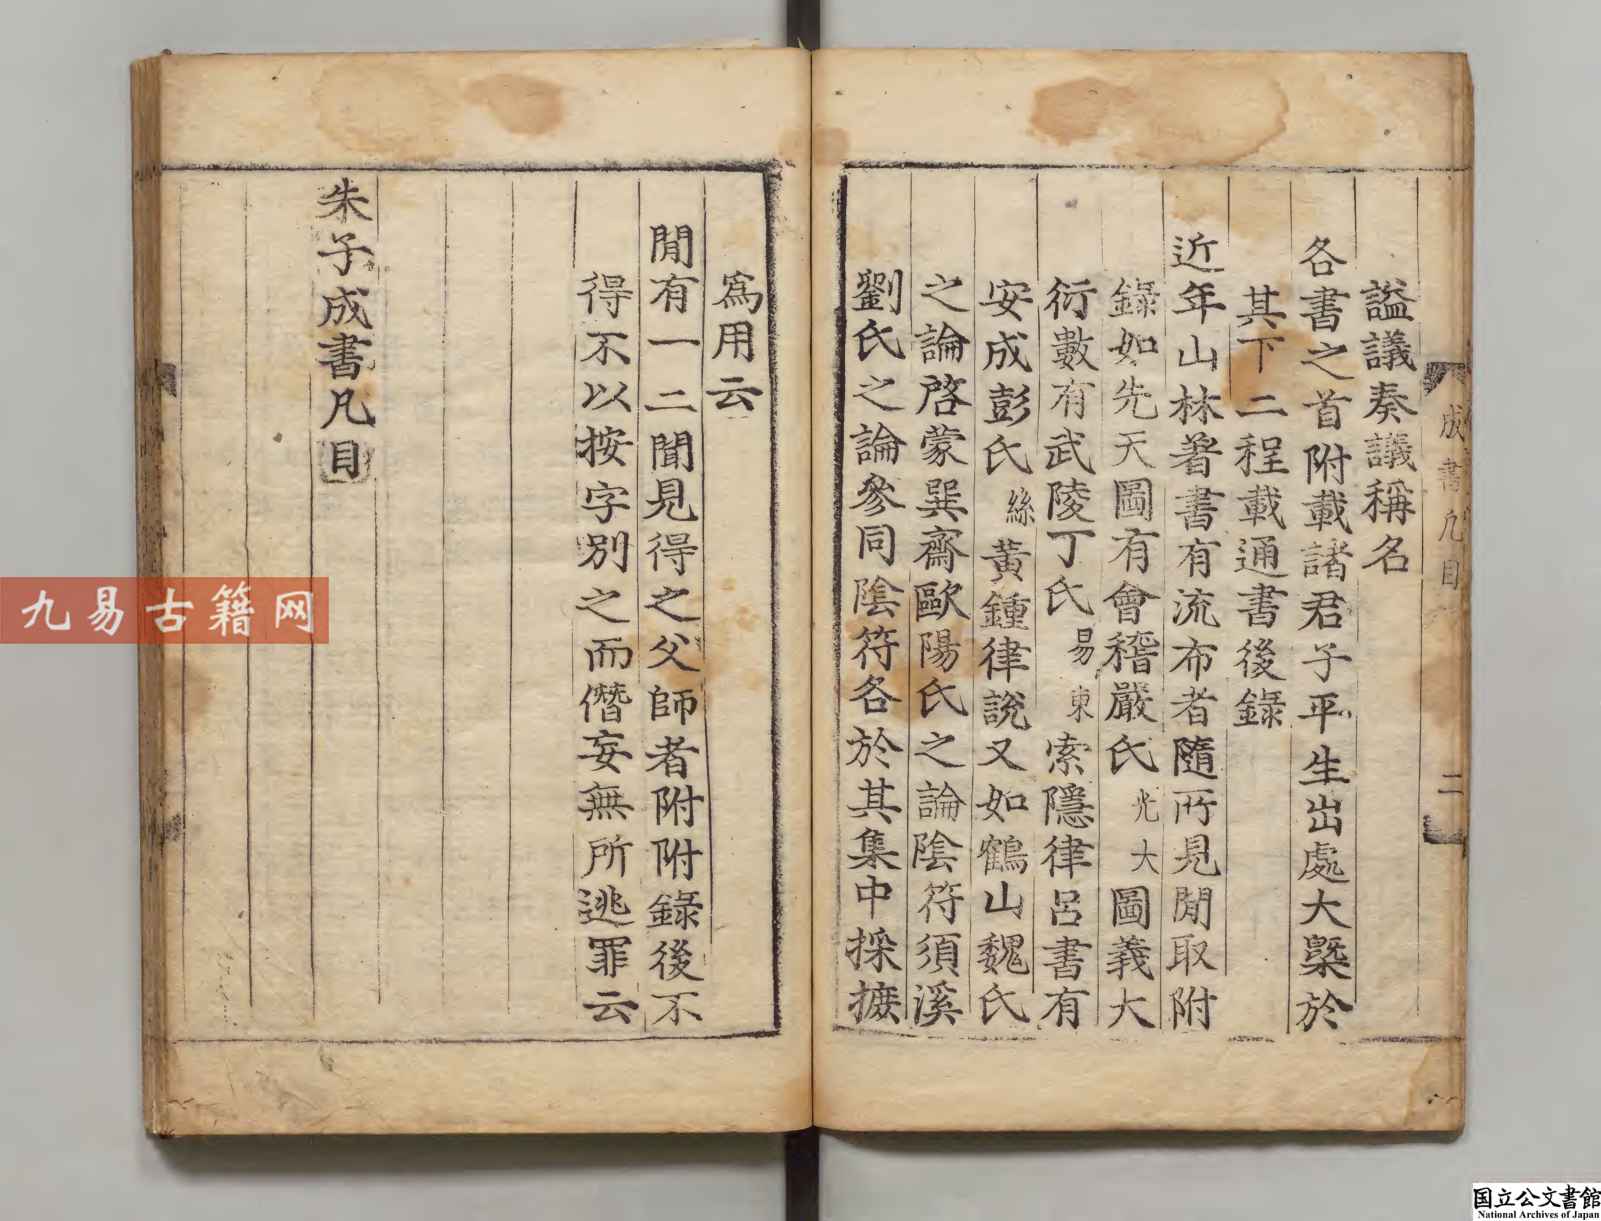 成書凡目 二
諡議奏議稱名
各書之首附載諸君子平生出處大槩於
其下二程載通書後錄
近年山林著書有流布者隨所見聞取附
錄如先天圖有會稽嚴氏光大圖義大
衍數有武陵丁氏易東索隱律呂書有
安成彭氏絲黃鍾律說又如鶴山魏氏
之論啓蒙巽齋歐陽氏之論陰符須溪
劉氏之論參同陰符各於其集中採摭
爲用云
閒有一二聞見得之父師者附附錄後不
得不以按字別之而僭妄無所逃罪云
朱子成書凡目
九易古籍网
国立公文書館
National Archives of Japan